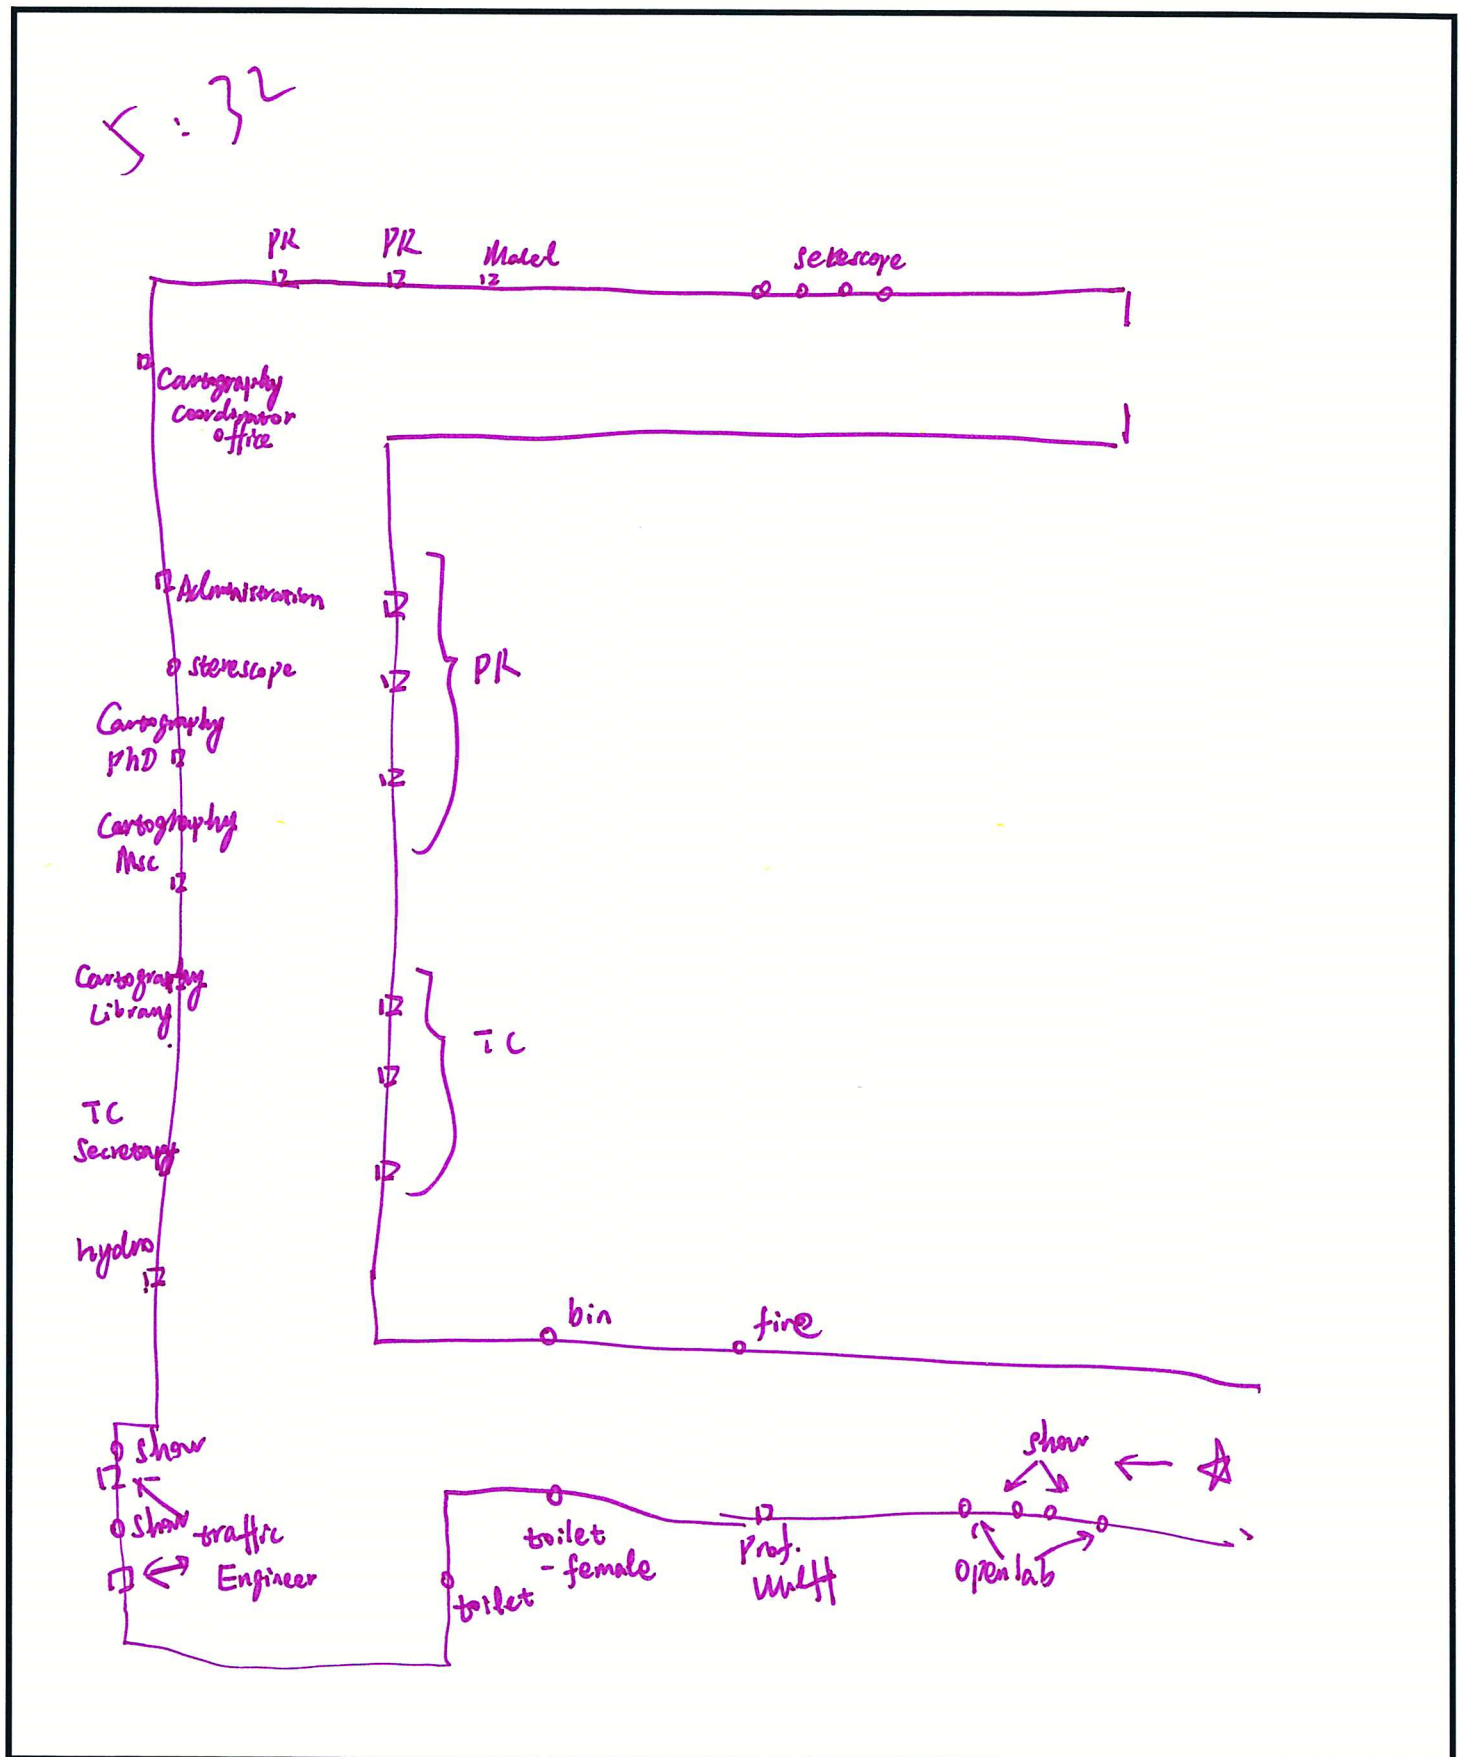 5:32
PR
PR
Model
setescope
Cartography
coordinator
office
Administration
sterescope
Cartography
PhD
PR
Cartography
Msc
Cartography
Library
TC
TC
Secretary
hydro
bin
fire
show
show
traffic
Engineer
toilet
- female
toilet
Prof.
show
open lab